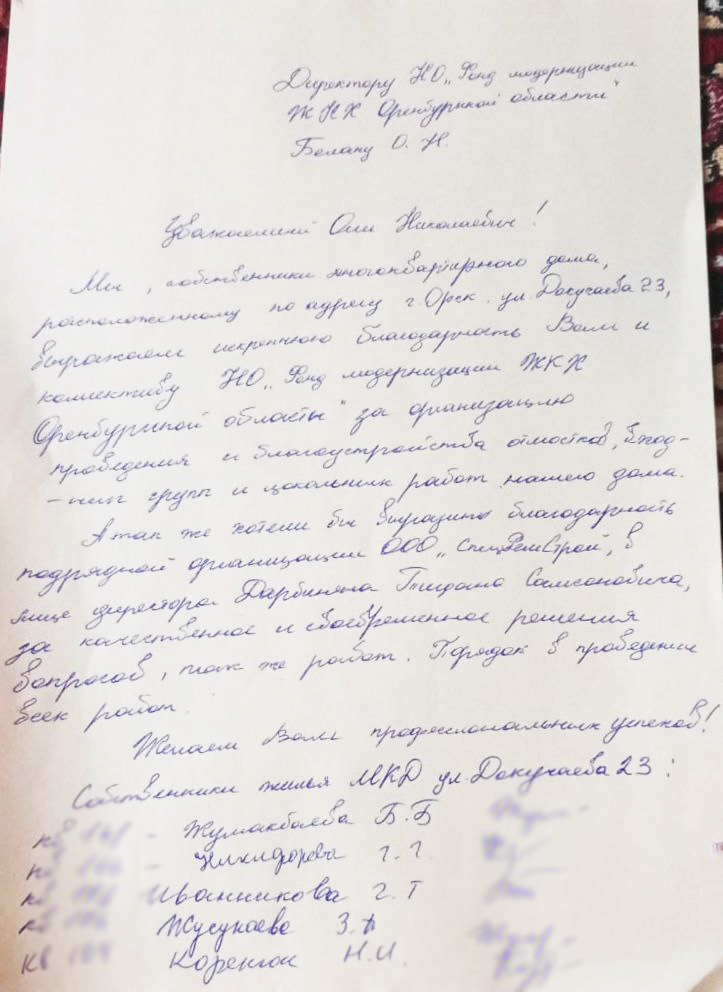 Директору НО „Фонд модернизации
ЖКХ Оренбургской области"
Белану О. Н.
Уважаемый Олег Николаевич!
Мы, собственники многоквартирного дома,
расположенному по адресу г. Орск. ул. Докучаева 23,
выражаем искреннюю благодарность Вам и
коллективу НО „Фонд модернизации ЖКХ
Оренбургской области" за организацию
проведения и благоустройства отмостков, вход-
-ных групп и цокольных работ нашего дома.
А так же хотели бы выразить благодарность
подрядной организации ООО „СпецРемСтрой", в
лице директора Дарбиняна Тиграна Самсоновича,
за качественное и своевременное решения
вопросов, так же работ. Порядок в проведении
всех работ.
Желаем Вам профессиональных успехов!
Собственники жилья МКД ул. Докучаева 23:
кв - Жумакбаева Б.Б
кв - Никифорова Г.Г
кв Иванникова Г.Т
кв З.
кв Н.И.